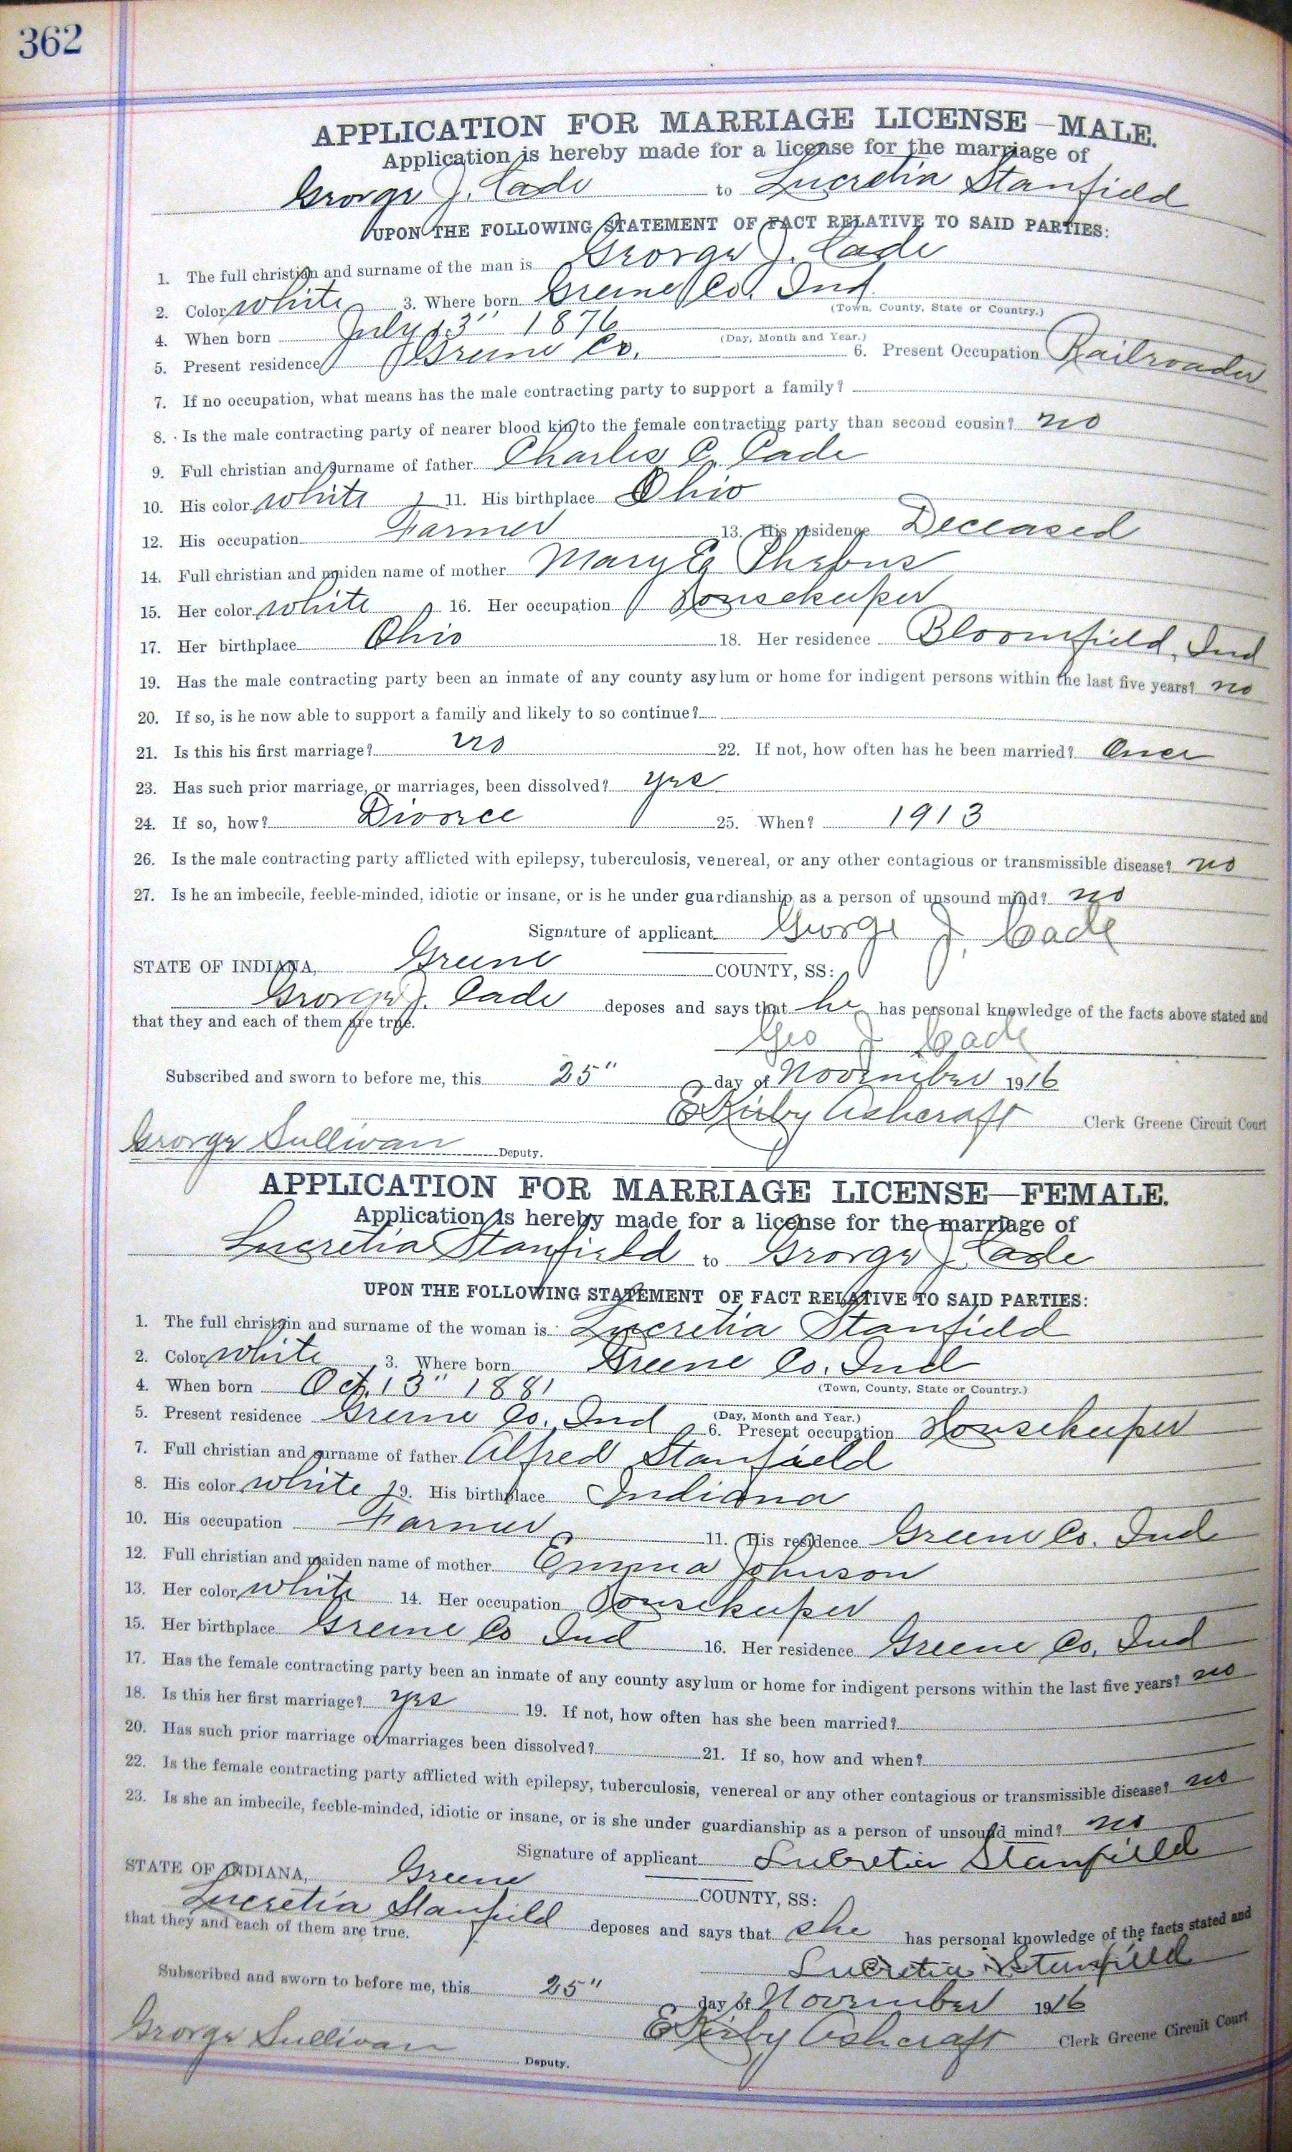 362
APPLICATION FOR MARRIAGE LICENSE—MALE.
Application is hereby made for a license for the marriage of
George J. Cade to Lucretia Stanfield
UPON THE FOLLOWING STATEMENT OF FACT RELATIVE TO SAID PARTIES:
1. The full christian and surname of the man is George J. Cade
2. Color white 3. Where born Greene Co. Ind
(Town, County, State or Country.)
4. When born July 13" 1876
(Day, Month and Year.)
5. Present residence Greene Co. 6. Present Occupation Railroader
7. If no occupation, what means has the male contracting party to support a family?
8. Is the male contracting party of nearer blood kin to the female contracting party than second cousin? no
9. Full christian and surname of father Charles C. Cade
10. His color white 11. His birthplace Ohio
12. His occupation Farmer 13. His residence Deceased
14. Full christian and maiden name of mother Mary E Phebus
15. Her color white 16. Her occupation Housekeeper
17. Her birthplace Ohio 18. Her residence Bloomfield, Ind
19. Has the male contracting party been an inmate of any county asylum or home for indigent persons within the last five years? no
20. If so, is he now able to support a family and likely to so continue?
21. Is this his first marriage? no 22. If not, how often has he been married? Once
23. Has such prior marriage, or marriages, been dissolved? yes
24. If so, how? Divorce 25. When? 1913
26. Is the male contracting party afflicted with epilepsy, tuberculosis, venereal, or any other contagious or transmissible disease? no
27. Is he an imbecile, feeble-minded, idiotic or insane, or is he under guardianship as a person of unsound mind? no
Signature of applicant George J. Cade
STATE OF INDIANA, Greene COUNTY, SS:
George J. Cade deposes and says that he has personal knowledge of the facts above stated and
that they and each of them are true.
Geo J Cade
Subscribed and sworn to before me, this 25" day of November 1916
E Kirby Ashcraft Clerk Greene Circuit Court
George Sullivan Deputy.
APPLICATION FOR MARRIAGE LICENSE—FEMALE.
Application is hereby made for a license for the marriage of
Lucretia Stanfield to George J. Cade
UPON THE FOLLOWING STATEMENT OF FACT RELATIVE TO SAID PARTIES:
1. The full christain and surname of the woman is Lucretia Stanfield
2. Color white 3. Where born Greene Co. Ind
(Town, County, State or Country.)
4. When born Oct. 13" 1881
(Day, Month and Year.)
5. Present residence Greene Co. Ind 6. Present occupation Housekeeper
7. Full christian and surname of father Alfred Stanfield
8. His color white 9. His birthplace Indiana
10. His occupation Farmer 11. His residence Greene Co. Ind
12. Full christian and maiden name of mother Emma Johnson
13. Her color white 14. Her occupation Housekeeper
15. Her birthplace Greene Co Ind 16. Her residence Greene Co. Ind
17. Has the female contracting party been an inmate of any county asylum or home for indigent persons within the last five years? no
18. Is this her first marriage? yes 19. If not, how often has she been married?
20. Has such prior marriage or marriages been dissolved? 21. If so, how and when?
22. Is the female contracting party afflicted with epilepsy, tuberculosis, venereal or any other contagious or transmissible disease? no
23. Is she an imbecile, feeble-minded, idiotic or insane, or is she under guardianship as a person of unsound mind? no
Signature of applicant Lucretia Stanfield
STATE OF INDIANA, Greene COUNTY, SS:
Lucretia Stanfield deposes and says that she has personal knowledge of the facts stated and
that they and each of them are true.
Lucretia Stanfield
Subscribed and sworn to before me, this 25" day of November 1916
E Kirby Ashcraft Clerk Greene Circuit Court
George Sullivan Deputy.